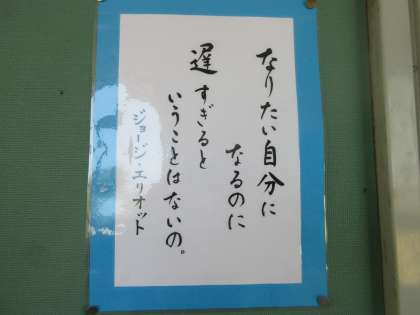 なりたい自分に
なるのに
遅すぎると
いうことはないの。
ジョージ・エリオット